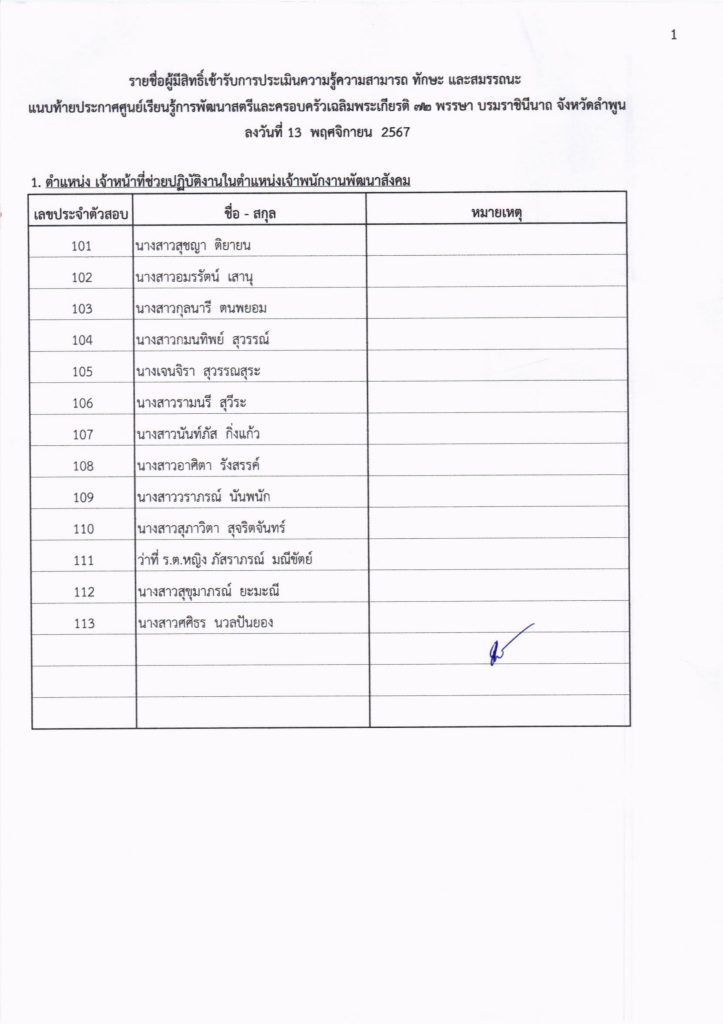 1
รายชื่อผู้มีสิทธิ์เข้ารับการประเมินความรู้ความสามารถ ทักษะ และสมรรถนะ
แนบท้ายประกาศศูนย์เรียนรู้การพัฒนาสตรีและครอบครัวเฉลิมพระเกียรติ ๗๒ พรรษา บรมราชินีนาถ จังหวัดลำพูน
ลงวันที่ 13 พฤศจิกายน 2567
1. ตำแหน่ง เจ้าหน้าที่ช่วยปฏิบัติงานในตำแหน่งเจ้าพนักงานพัฒนาสังคม
เลขประจำตัวสอบ ชื่อ - สกุล หมายเหตุ
101 นางสาวสุชญา ติยายน
102 นางสาวอมรรัตน์ เสานุ
103 นางสาวกุลนารี ตนพยอม
104 นางสาวกมนทิพย์ สุวรรณ์
105 นางเจนจิรา สุวรรณสุระ
106 นางสาวรามนรี สุวีระ
107 นางสาวนันท์ภัส กิ่งแก้ว
108 นางสาวอาศิตา รังสรรค์
109 นางสาววราภรณ์ นันพนัก
110 นางสาวสุภาวิตา สุจริตจันทร์
111 ว่าที่ ร.ต.หญิง ภัสราภรณ์ มณีขัตย์
112 นางสาวสุขุมาภรณ์ ยะมะณี
113 นางสาวศศิธร นวลปันยอง